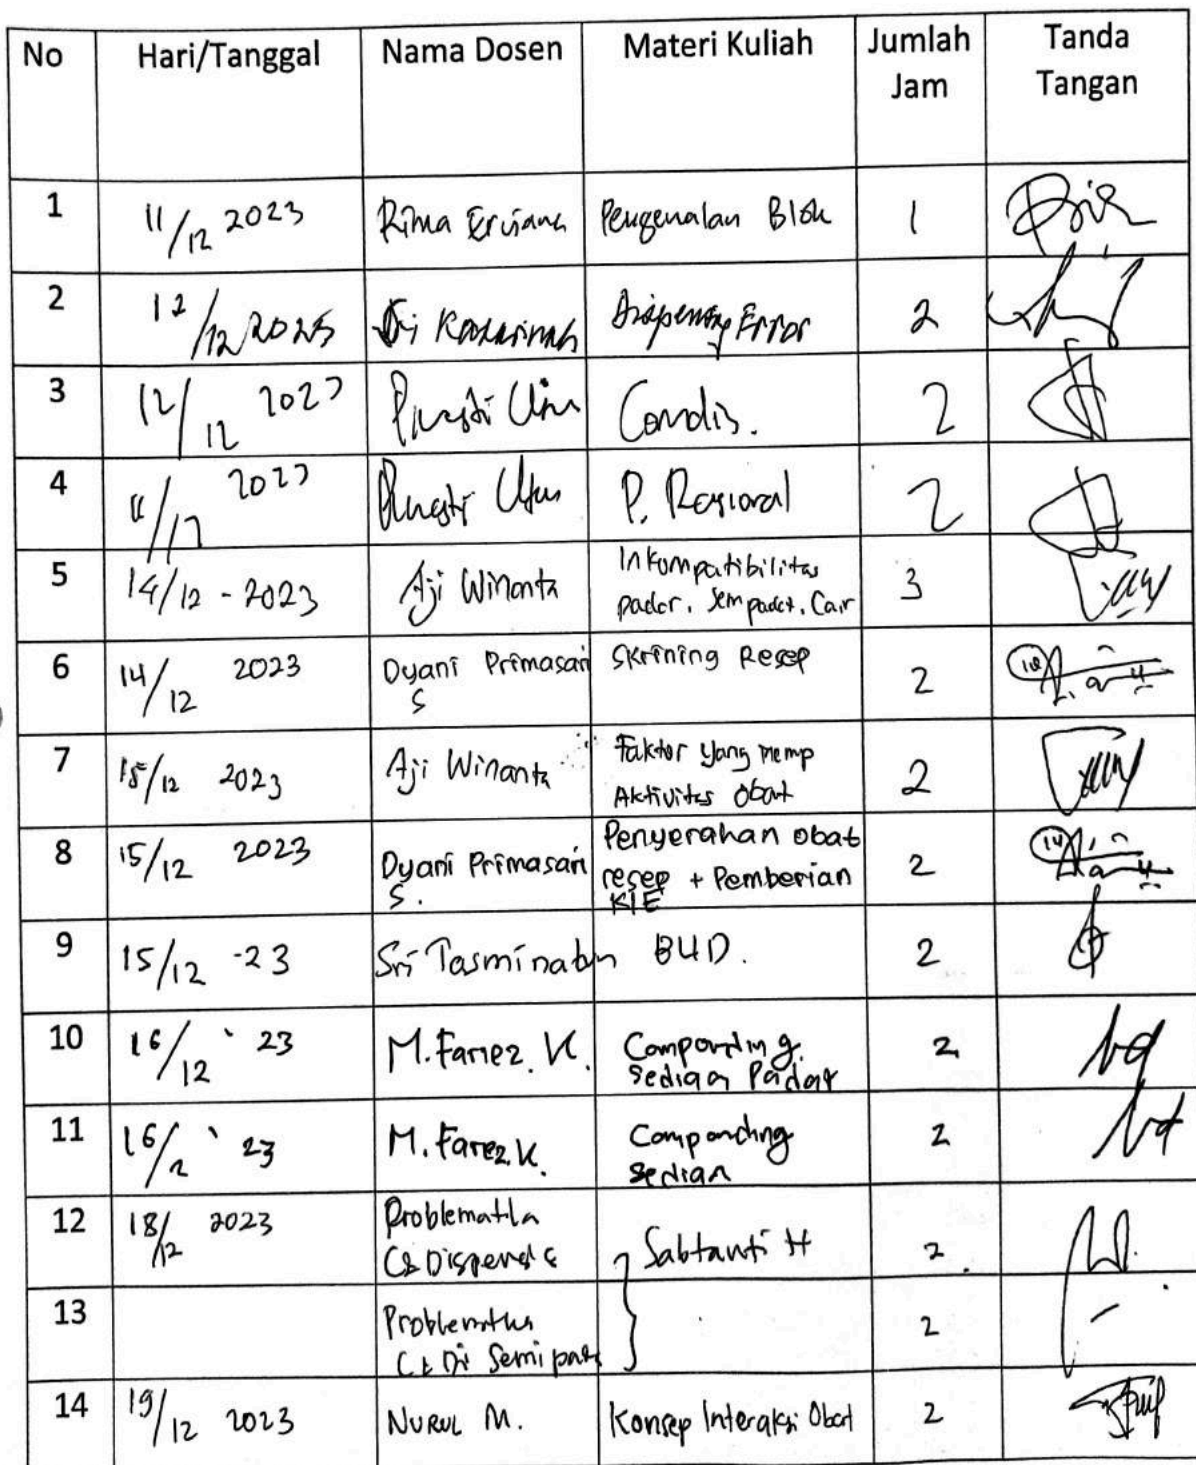 No Hari/Tanggal Nama Dosen Materi Kuliah Jumlah Jam Tanda Tangan
1 11/12 2023 Rima Erviana Pengenalan Blok 1
2 12/12 2023 Dispensing Error 2
3 12/12 2023 Comdis. 2
4 2023 P. Rasional 2
5 14/12 - 2023 Aji Winanta Inkompatibilitas
padat, sempadat, Cair 3
6 14/12 2023 Dyani Primasari
S Skrining Resep 2
7 15/12 2023 Aji Winanta Faktor yang memp
Aktivitas obat 2
8 15/12 2023 Dyani Primasari
S. Penyerahan obat
resep + Pemberian
KIE 2
9 15/12 -23 Sri Tasminatun BUD. 2
10 16/12 ' 23 M. Fariez. K. Compounding
Sediaan Padat 2
11 16/ ' 23 M. Fariez. K. Compounding
Sedian 2
12 18/12 2023 Problematika
C& Dispens Sabtanti H 2
13 Problematika
Semi 2
14 19/12 2023 Nurul M. Konsep Interaksi Obat 2